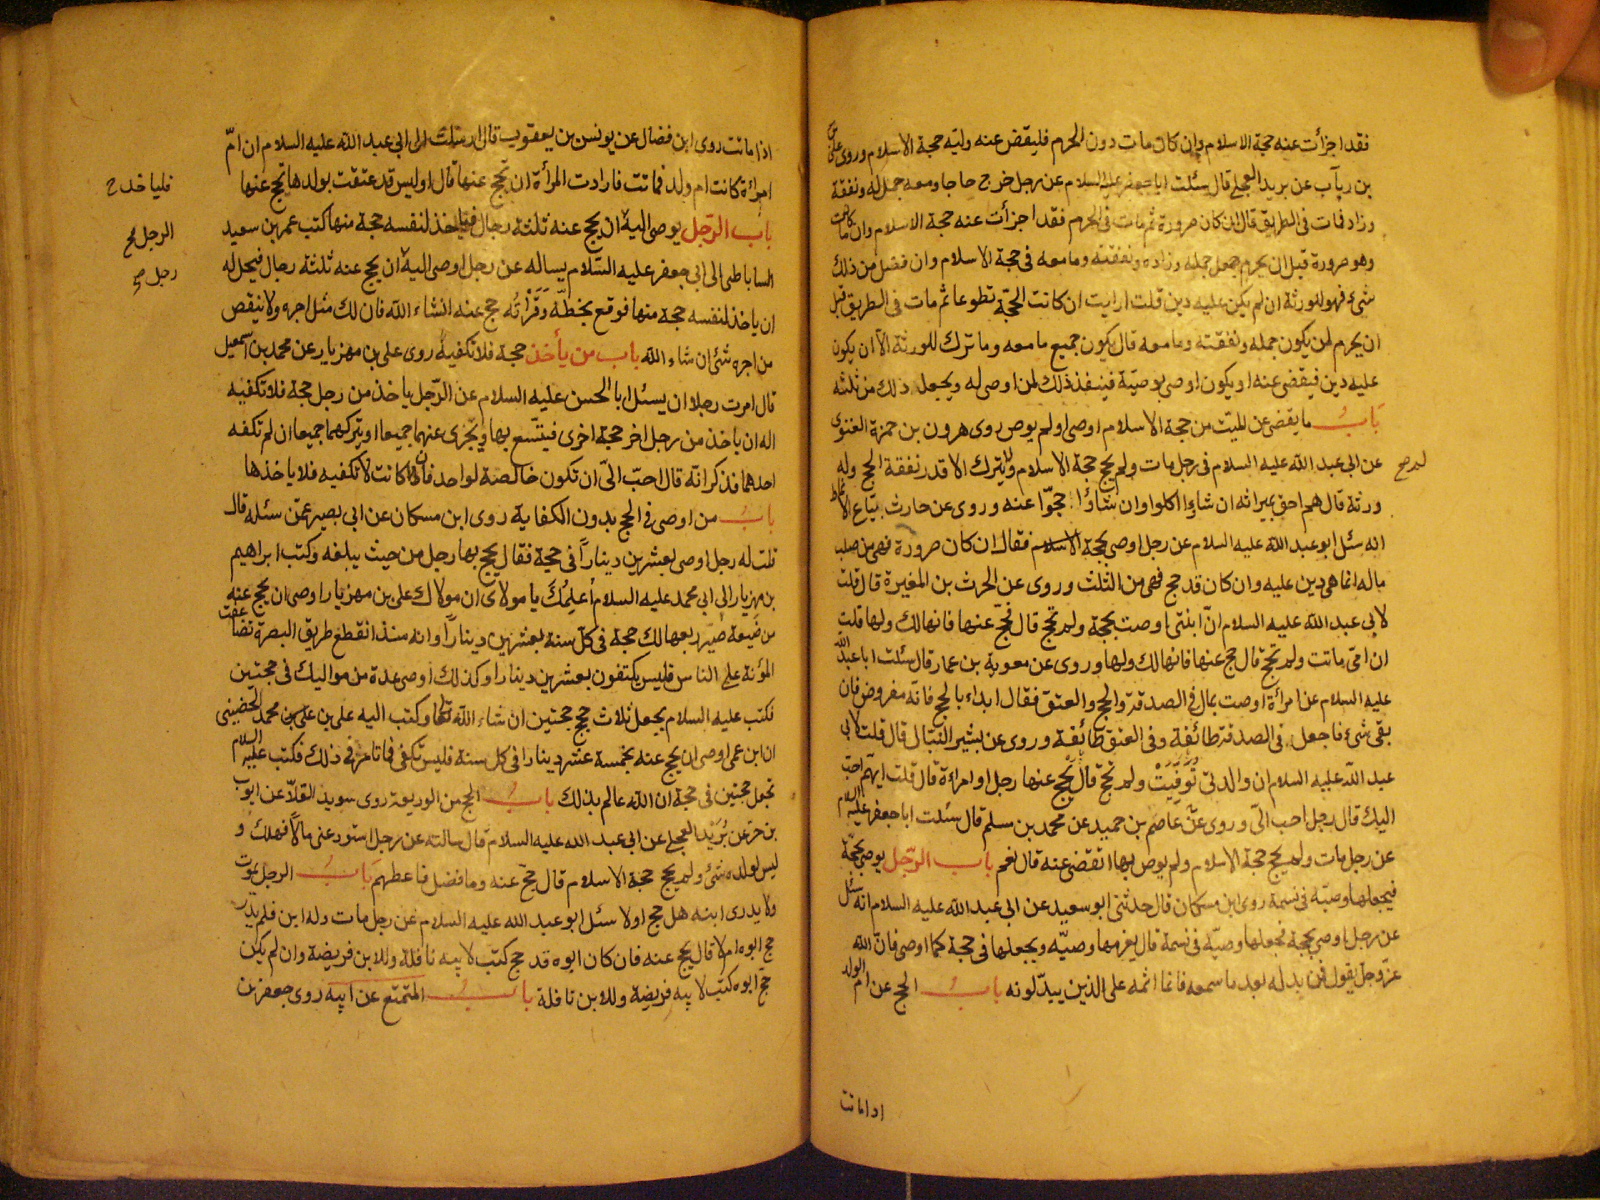 فقد اجزأت عنه حجة الاسلام وان كان مات دون الحرم فليقض عنه وليه حجة الاسلام وروى على
بن رياب عن بريد العجلى قال سئلت ابا جعفر عليه السلام عن رجل خرج حاجا ومعه جمل له ونفقة
وزاد فمات فى الطريق قال ان كان صرورة ثم مات فى الحرم فقد اجزأت عنه حجة الاسلام وان مات
وهو صرورة قبل ان يحرم جعل جمله وزاده ونفقته وما معه فى حجة الاسلام وان فضل من ذلك
شىء فهو للورثة ان لم يكن عليه دين قلت ارايت ان كانت الحجة تطوعا ثم مات فى الطريق قبل
ان يحرم لمن يكون جمله ونفقته وما معه قال يكون جميع ما معه وما ترك للورثة الا ان يكون
عليه دين فيقضى عنه او يكون اوصى بوصية فينفذ ذلك لمن اوصى له ويجعل ذلك من ثلثه
باب ما يقضى عن الميت من حجة الاسلام اوصى او لم يوص روى هرون بن حمزة الغنوى
عن ابى عبد الله عليه السلام فى رجل مات ولم يحج حجة الاسلام ولم يترك الا قدر نفقة الحج وله
لم صح
ورثة قال هم احق بميراثه ان شاؤا اكلوا وان شاؤا حجوا عنه وروى عن حارث بياع الانماط
انه سئل ابو عبد الله عليه السلام عن رجل اوصى بحجة الاسلام فقال ان كان صرورة فهى من صلب
ماله انما هى دين عليه وان كان قد حج فهى من الثلث وروى عن الحرث بن المغيرة قال قلت
لابى عبد الله عليه السلام ان ابنتى اوصت بحجة ولم تحج قال فحج عنها فانها لك ولها قلت
ان امى ماتت ولم تحج قال حج عنها فانها لك ولها وروى عن معوية بن عمار قال سئلت ابا عبد الله
عليه السلام عن امرأة اوصت بمال فى الصدقة والحج والعتق فقال ابداء بالحج فانه مفروض فان
بقى شىء فاجعل فى الصدقة طائفة وفى العتق طائفة وروى عن بشير النبال قال قلت لابى
عبد الله عليه السلام ان والدتى توفيت ولم تحج قال يحج عنها رجل او امراءة قال قلت ايهم احب
اليك قال رجل احب الى وروى عن عاصم بن حميد عن محمد بن مسلم قال سئلت ابا جعفر عليه السلام
عن رجل مات ولم يحج حجة الاسلام ولم يوص بها اتقضى عنه قال نعم باب الرجل يوصى بحجة
فيجعلها وصيه فى نسمة روى ابن مسكان قال حدثنى ابو سعيد عن ابى عبد الله عليه السلام انه سئل
عن رجل اوصى بحجة فجعلها وصيه فى نسمة قال يغرمها وصيه ويجعلها فى حجة كما اوصى فان الله
عز وجل يقول فمن بدله بعد ما سمعه فانما اثمه على الذين يبدلونه باب الحج عن ام الولد
اذا ماتت
اذا ماتت روى ابن فضال عن يونس بن يعقوب قال ارسلت الى ابى عبد الله عليه السلام ان ام
امرأة كانت ام ولد فماتت فارادت المرأة ان تحج عنها قال اوليس قد عتقت بولدها تحج عنها
باب الرجل يوصى اليه ان يحج عنه ثلثة رجال فياخذ لنفسه حجة منها كتب عمر بن سعيد
الساباطى الى ابى جعفر عليه السلام يساله عن رجل اوصى اليه ان يحج عنه ثلثة رجال فيحل له
ان ياخذ لنفسه حجة منها فوقع بخطه وقرأته حج عنه انشاء الله فان لك مثل اجره ولا ينقص
من اجره شئ ان شاء الله باب من يأخذ حجة فلا تكفيه روى على بن مهزيار عن محمد بن اسمعيل
قال امرت رجلا ان يسئل ابا الحسن عليه السلام عن الرجل ياخذ من رجل حجة فلا تكفيه
اله ان ياخذ من رجل اخر حجة اخرى فيتسع بها ويجزى عنهما جميعا او يتركهما جميعا ان لم تكفه
احدهما فذكر انه قال احب الى ان تكون خالصة لواحد فان كانت لا تكفيه فلا ياخذها
باب من اوصى فى الحج بدون الكفاية روى ابن مسكان عن ابى بصير عمن سئله قال
قلت له رجل اوصى بعشرين دينارا فى حجة فقال يحج بها رجل من حيث يبلغه وكتب ابراهيم
بن مهزيار الى ابى محمد عليه السلام أعلمك يا مولاى ان مولاك على بن مهزيار اوصى ان يحج عنه
من ضيعة صير ربعها لك حجة فى كل سنة بعشرين دينارا وانه منذ انقطع طريق البصرة تضاعفت
المؤنة على الناس فليس يكتفون بعشرين دينارا وكذلك اوصى عدة من مواليك فى حجتين
فكتب عليه السلام يجعل ثلاث حجج حجتين ان شاء الله تعالى وكتب اليه على بن محمد الحضينى
ان ابن عمى اوصى ان يحج عنه بخمسة عشر دينارا فى كل سنة فليس تكفى فما تامر فى ذلك فكتب عليه السلام
تجعل حجتين فى حجة ان الله عالم بذلك باب الحج من الوديعة روى سويد القلا عن ايوب
بن حر عن بريد العجلى عن ابى عبد الله عليه السلام قال سالته عن رجل استودعنى مالا فهلك و
ليس لولده شئ ولم يحج حجة الاسلام قال حج عنه وما فضل فاعطهم باب الرجل يموت
ولا يدرى ابنه هل حج او لا سئل ابو عبد الله عليه السلام عن رجل مات وله ابن فلم يدر
حج ابوه ام لا قال يحج عنه فان كان ابوه قد حج كتب لابيه نافلة وللابن فريضة وان لم يكن
حج ابوه كتب لابيه فريضة وللابن نافلة باب المتمتع عن ابيه روى جعفر بن
الرجل صح
رجل